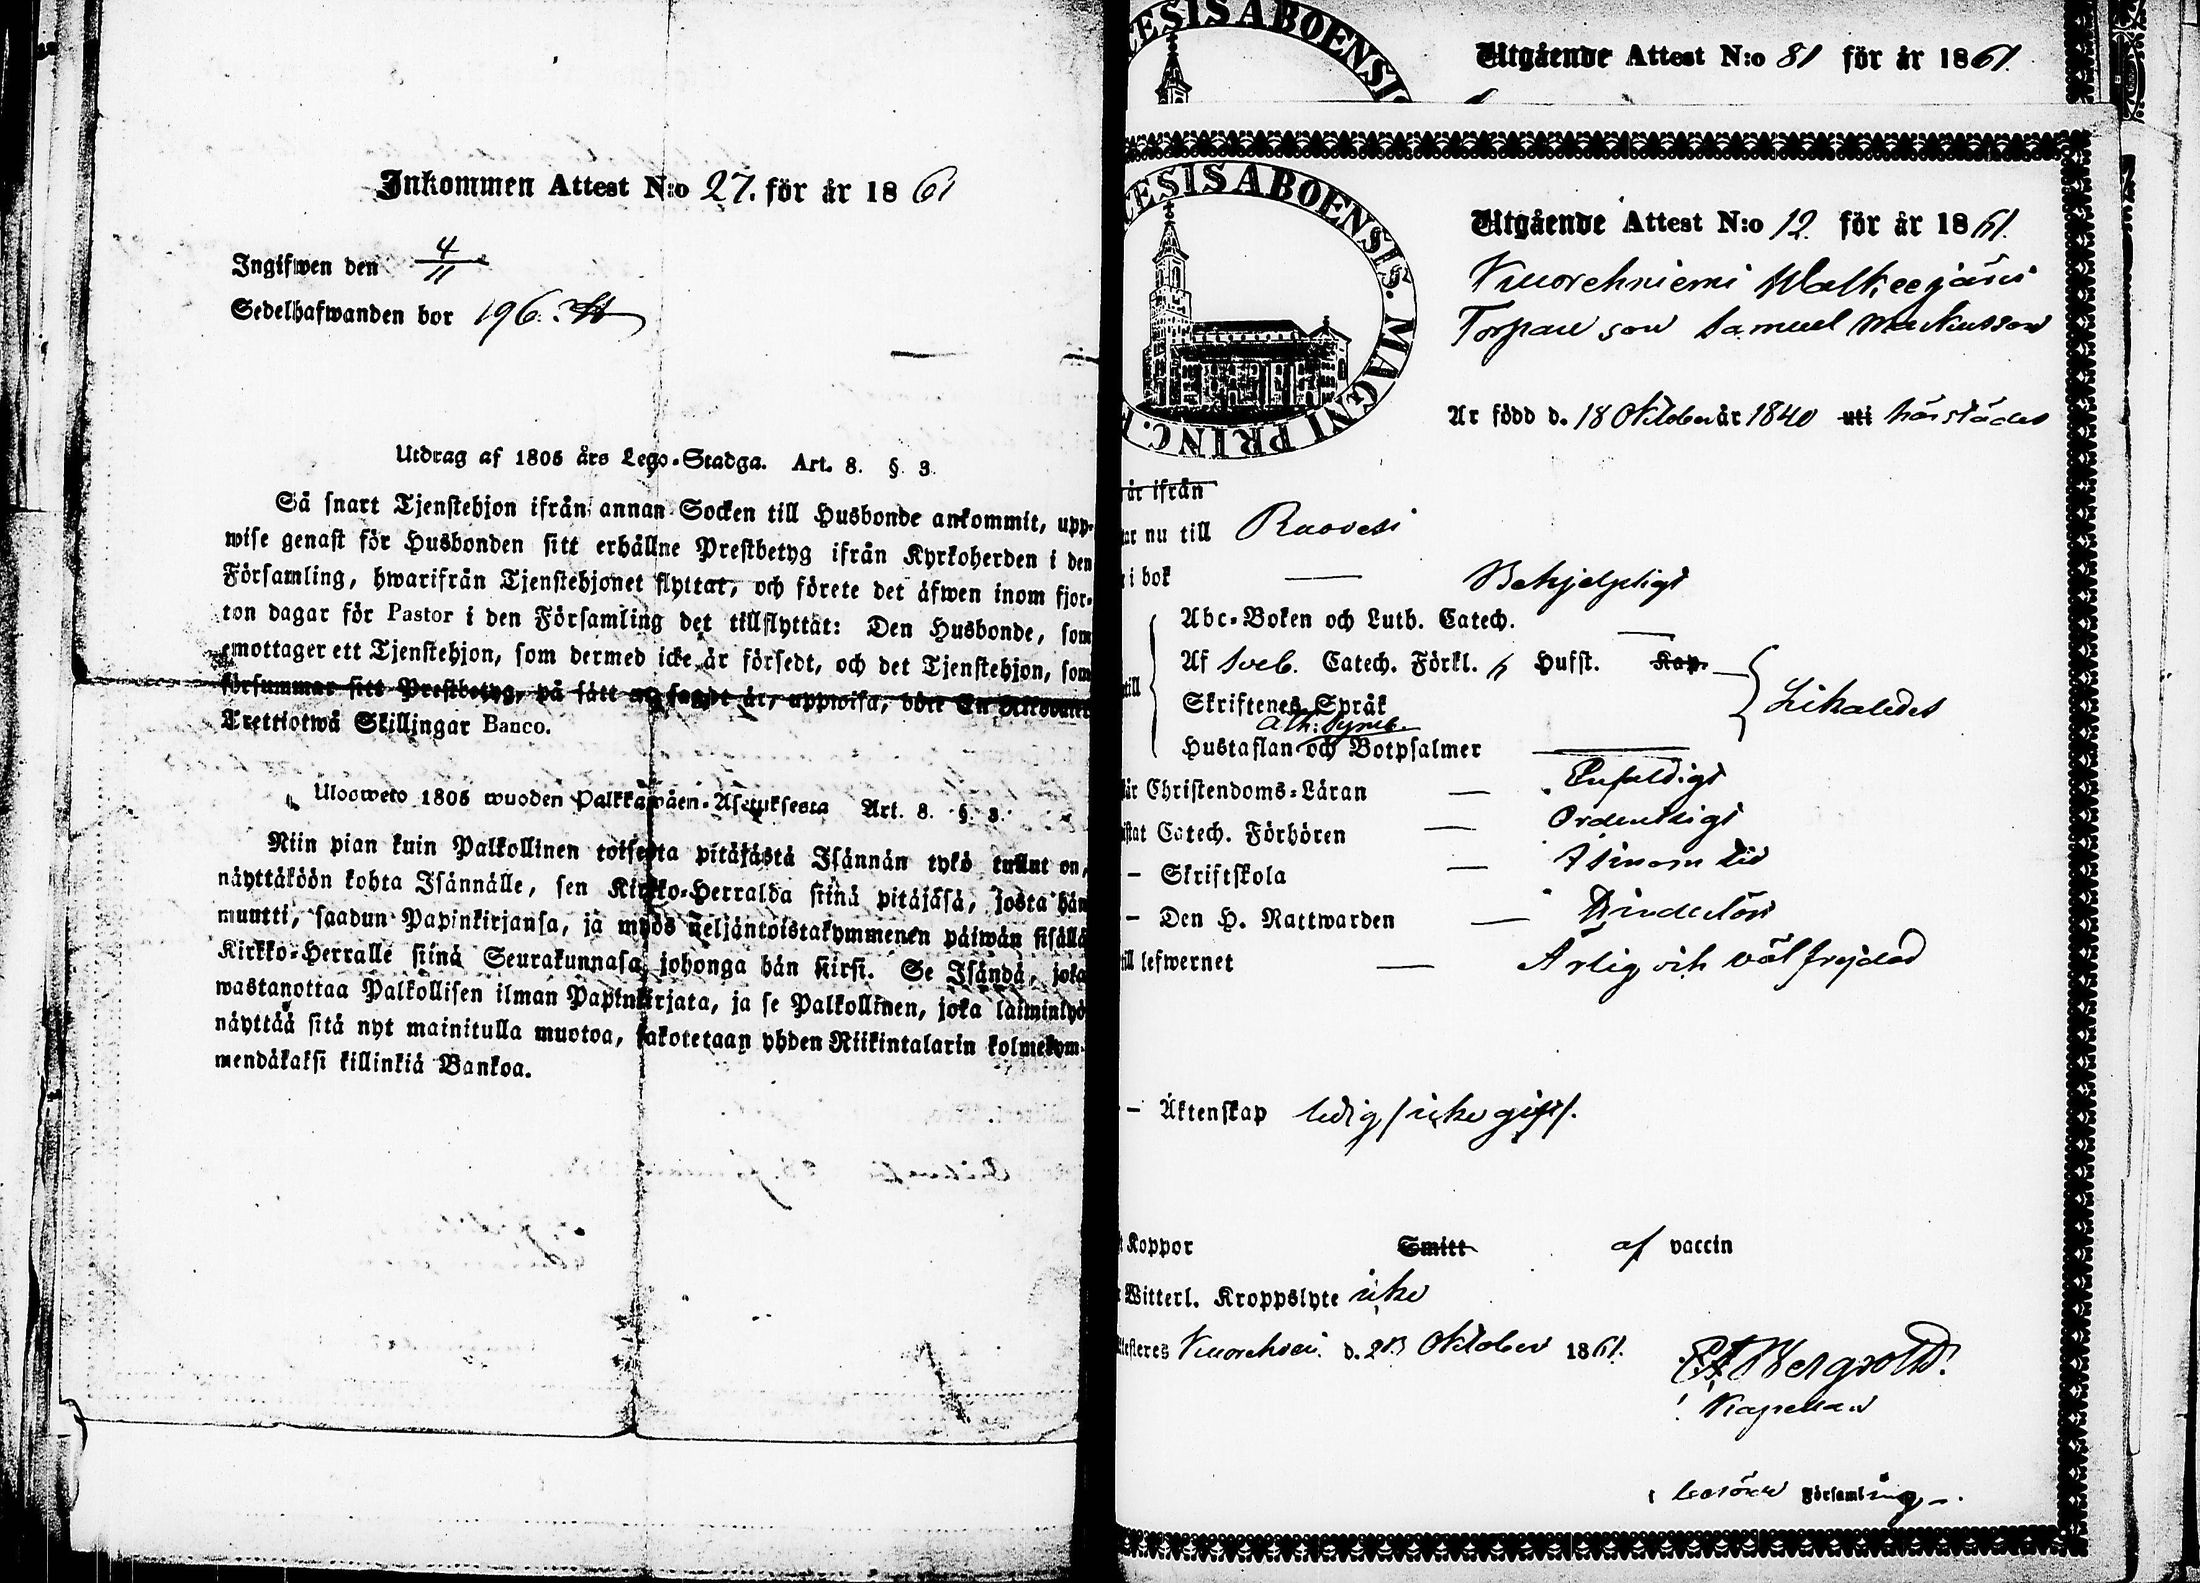 Inkommen Attest N:o 27. för år 1861
Ingifwen den 4/11
Sedelhafwanden bor 196.
Utdrag af 1805 års Lego-Stadga. Art. 8. §. 3.
Så snart Tjenstehjon ifrån annan Socken till Husbonde ankommit, upp-
wise genast för Husbonden sitt erhållne Prestbetyg ifrån Kyrkoherden i den
Församling, hwarifrån Tjenstehjonet flyttat, och förete det äfwen inom fjor-
ton dagar för Pastor i den Församling det tillflyttat: Den Husbonde, som
emottager ett Tjenstehjon, som dermed icke är försedt, och det Tjenstehjon, som
försummar sitt Prestbetyg, på sätt nu sagdt är, uppwisa, böte En Riksdaler
Trettiotwå Skillingar Banco.
Ulosweto 1805 wuoden Palkkawäen-Asetuksesta Art. 8. §. 3.
Niin pian kuin Palkollinen toisesta pitäjästä Isännän tykö tullut on,
näyttäköön kohta Isännälle, sen Kirkko-Herralda siinä pitäjäsä, josta hän
muutti, saadun Papinkirjansa, ja myös neljäntoistakymmenen päiwän sisällä
Kirkko-Herralle siinä Seurakunnasa, johonga hän siirsi. Se Isändä, joka
wastanottaa Palkollisen ilman Papinkirjata, ja se Palkollinen, joka laiminlyö
näyttää sitä nyt mainitulla muotoa, sakotetaan yhden Riikintalarin kolmekym-
mendäkaksi killinkiä Bankoa.
CESIS ABOENSIS
Utgående Attest N:o 81 för år 1861.
CESIS ABOENSIS. MAGNI PRINC. F
Utgående Attest N:o 12. för år 1861.
Kuorehniemi Walkeejärvi
Torpare son Samuel Markusson
Är född d. 18 Oktober år 1840 uti härstädes
är ifrån
ar nu till Ruovesi
i bok — Behjelpligt
Abc-Boken och Luth. Catech.
Af Sveb. Catech. Förkl. Husst. Kap.
till Skriftenes Språk Likaledes
Ath: Symb.
Hustaflan och Botpsalmer
är Christendoms-Läran — Enfaldigt
stat Catech. Förhören — Ordentligt
– Skriftskola — I sinom tid
– Den H. Nattwarden — Hinderlös
till lefwernet — Ärlig och väl frejdad
– Äktenskap ledig / icke gift /.
t Koppor Smitt af vaccin
t Witterl. Kroppslyte icke
ttesteres Kuorehvesi d. 23 Oktober 1861.
Bergroth.
Kapellan
i Församling